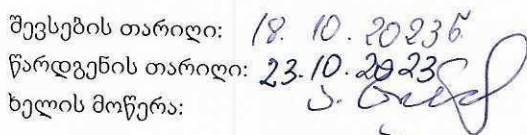 შევსების თარიღი: 18.10.2023წ
წარდგენის თარიღი: 23.10.2023
ხელის მოწერა: